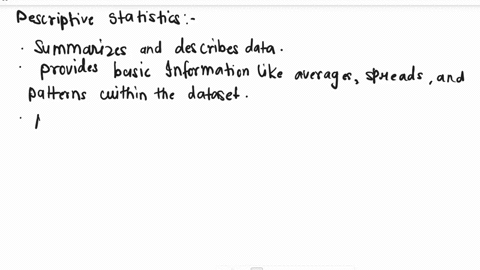 Descriptive Statistics:-
· Summarizes and describes data.
· provides basic Information like averages, spreads, and
patterns within the dataset.
·